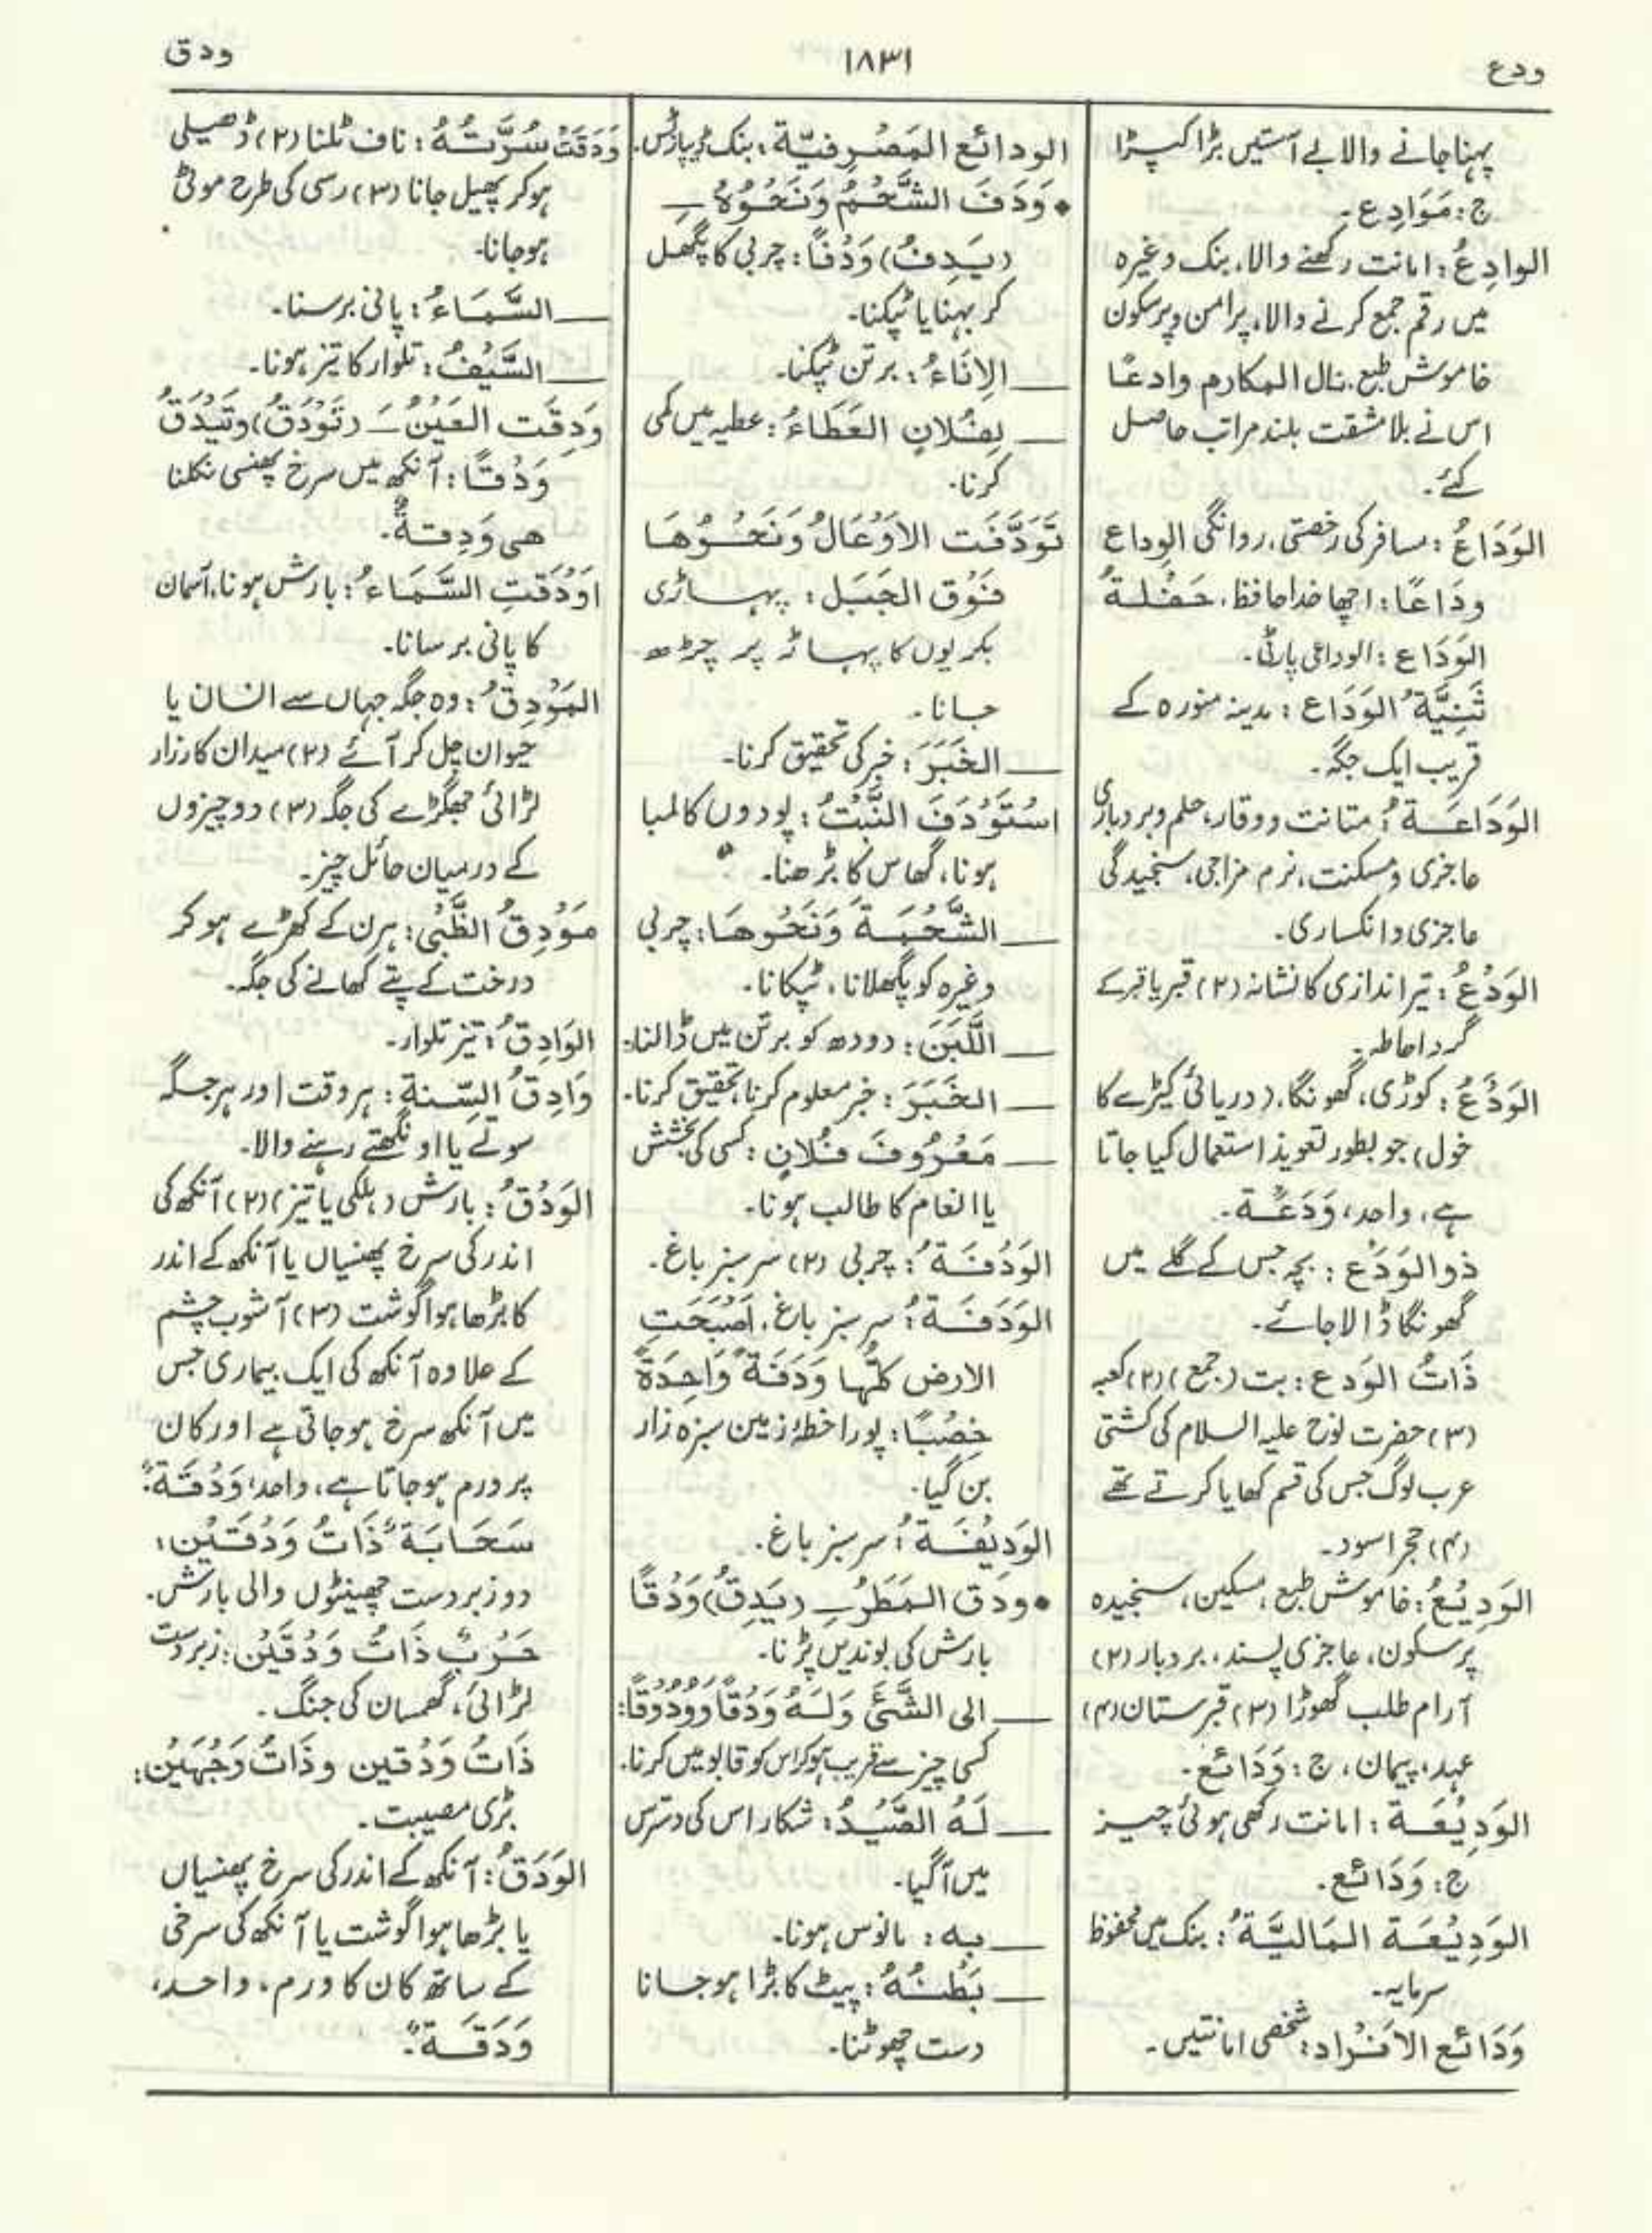 ودع
۱۸۳۱
ودق
پہنا جانے والا بے آستیں بڑا کپڑا
ج: مَوَادِع۔
الوادِعُ: امانت رکھنے والا، بنک وغیرہ
میں رقم جمع کرنے والا، پرامن و پرسکون
خاموش طبع، نال المکارم وادعًا
اس نے بلا مشقت بلند مراتب حاصل
کئے۔
الوَدَاعُ: مسافر کی رخصتی، روانگی الوداع
ودَاعًا: اچھا خدا حافظ، حَفْلةُ
الوَدَاع: الوداعی پارٹی۔
ثَنِيَّةُ الوَدَاع: مدینہ منورہ کے
قریب ایک جگہ۔
الوَدَاعَةُ: متانت و وقار، حلم و بردباری
عاجزی و مسکنت، نرم مزاجی، سنجیدگی
عاجزی و انکساری۔
الوَدْعُ: تیر اندازی کا نشانہ (۲) قبر یا قبر کے
گرد احاطہ۔
الوَدَعُ: کوڑی، گھونگا، (دریائی کیڑے کا
خول) جو بطور تعویذ استعمال کیا جاتا
ہے، واحد، وَدَعَة۔
ذو الوَدَع: بچہ جس کے گلے میں
گھونگا ڈالا جائے۔
ذَاتُ الوَدع: بت (جمع) (۲) کعبہ
(۳) حضرت نوح علیہ السلام کی کشتی
عرب لوگ جس کی قسم کھایا کرتے تھے
(۴) حجر اسود۔
الوَدِيْعُ: خاموش طبع، مسکین، سنجیدہ
پرسکون، عاجزی پسند، بردبار (۲)
آرام طلب گھوڑا (۳) قبرستان (۴)
عہد، پیمان، ج: وَدَائع۔
الوَدِيْعَة: امانت رکھی ہوئی چیز
ج: وَدَائع۔
الوَدِيْعَة المَاليَّةُ: بنک میں محفوظ
سرمایہ۔
وَدَائع الافْراد: شخصی امانتیں۔
الودائع المَصْرِفيّة: بنک ڈپازٹس۔
• وَدَفَ الشَّحْمُ وَنَحْوُهُ ـِـ
(يَدِفُ) وَدْفًا: چربی کا پگھل
کر بہنا یا ٹپکنا۔
ـــ الاِنَاءُ: برتن ٹپکنا۔
ـــ لِفُلانٍ العَطَاءُ: عطیہ میں کمی
کرنا۔
تَوَدَّفَت الاَوْعَالُ وَنَحْوُهَا
فَوْق الجَبَل: پہاڑی
بکریوں کا پہاڑ پر چڑھ
جانا۔
ـــ الخَبَرَ: خبر کی تحقیق کرنا۔
اسْتَوْدَفَ النَّبْتُ: پودوں کا لمبا
ہونا، گھاس کا بڑھنا۔
ـــ الشَّحْمَةَ وَنَحْوهَا: چربی
وغیرہ کو پگھلانا، ٹپکانا۔
ـــ اللَّبَنَ: دودھ کو برتن میں ڈالنا۔
ـــ الخَبَرَ: خبر معلوم کرنا، تحقیق کرنا۔
ـــ مَعْرُوفَ فُلانٍ: کسی کی بخشش
یا انعام کا طالب ہونا۔
الوَدْفَةُ: چربی (۲) سر سبز باغ۔
الوَدَفَةُ: سر سبز باغ، اَصْبَحَتِ
الارض كلُّها وَدَفَةً وَاحِدَةً
خِصْبًا: پورا خطۂ زمین سبزہ زار
بن گیا۔
الوَدِيْفَةُ: سر سبز باغ۔
• ودق المَطَرُ ـِـ (يَدِقُ) وَدْقًا
بارش کی بوندیں پڑنا۔
ـــ الى الشَّئَ وَلَهُ وَدْقًا وَوُدُوقًا:
کسی چیز سے قریب ہو کر اس کو قابو میں کرنا۔
ـــ لَهُ الصَّيْدُ: شکار اس کی دسترس
میں آگیا۔
ـــ به: مانوس ہونا۔
ـــ بَطْنُهُ: پیٹ کا بڑا ہو جانا
دست چھوٹنا۔
وَدَقَتْ سُرَّتُهُ: ناف ٹلنا (۲) ڈھیلی
ہو کر پھیل جانا (۳) رسی کی طرح موٹی
ہو جانا۔
ـــ السَّمَاءُ: پانی برسنا۔
ـــ السَّيْفُ: تلوار کا تیز ہونا۔
وَدِقَت العَيْنُ ـَـ (تَوْدَقُ) وتَيْدَقُ
وَدْقًا: آنکھ میں سرخ پھنسی نکلنا
هى وَدِقةٌ۔
اَوْدَقَتِ السَّمَاءُ: بارش ہونا، آسمان
کا پانی برسانا۔
المَوْدِقُ: وہ جگہ جہاں سے انسان یا
حیوان چل کر آئے (۲) میدان کارزار
لڑائی جھگڑے کی جگہ (۳) دو چیزوں
کے درمیان حائل چیز۔
مَوْدِقُ الظَّبْى: ہرن کے کھڑے ہو کر
درخت کے پتے کھانے کی جگہ۔
الوَادِقُ: تیز تلوار۔
وَادِقُ السِّنة: ہر وقت اور ہر جگہ
سوتے یا اونگھتے رہنے والا۔
الوَدْقُ: بارش (ہلکی یا تیز) (۲) آنکھ کی
اندر کی سرخ پھنسیاں یا آنکھ کے اندر
کا بڑھا ہوا گوشت (۳) آشوب چشم
کے علاوہ آنکھ کی ایک بیماری جس
میں آنکھ سرخ ہو جاتی ہے اور کان
پر ورم ہو جاتا ہے، واحد، وَدْقَة:
سَحَابَةٌ ذَاتُ وَدْقَتَيْن:
دو زبردست چھینٹوں والی بارش۔
حَرْبٌ ذَاتُ وَدْقَيْن: زبردست
لڑائی، گھمسان کی جنگ۔
ذَاتُ وَدْقين وذَاتُ وَجْهَيْن:
بڑی مصیبت۔
الوَدَقُ: آنکھ کے اندر کی سرخ پھنسیاں
یا بڑھا ہوا گوشت یا آنکھ کی سرخی
کے ساتھ کان کا ورم، واحد،
وَدَقَةٌ۔